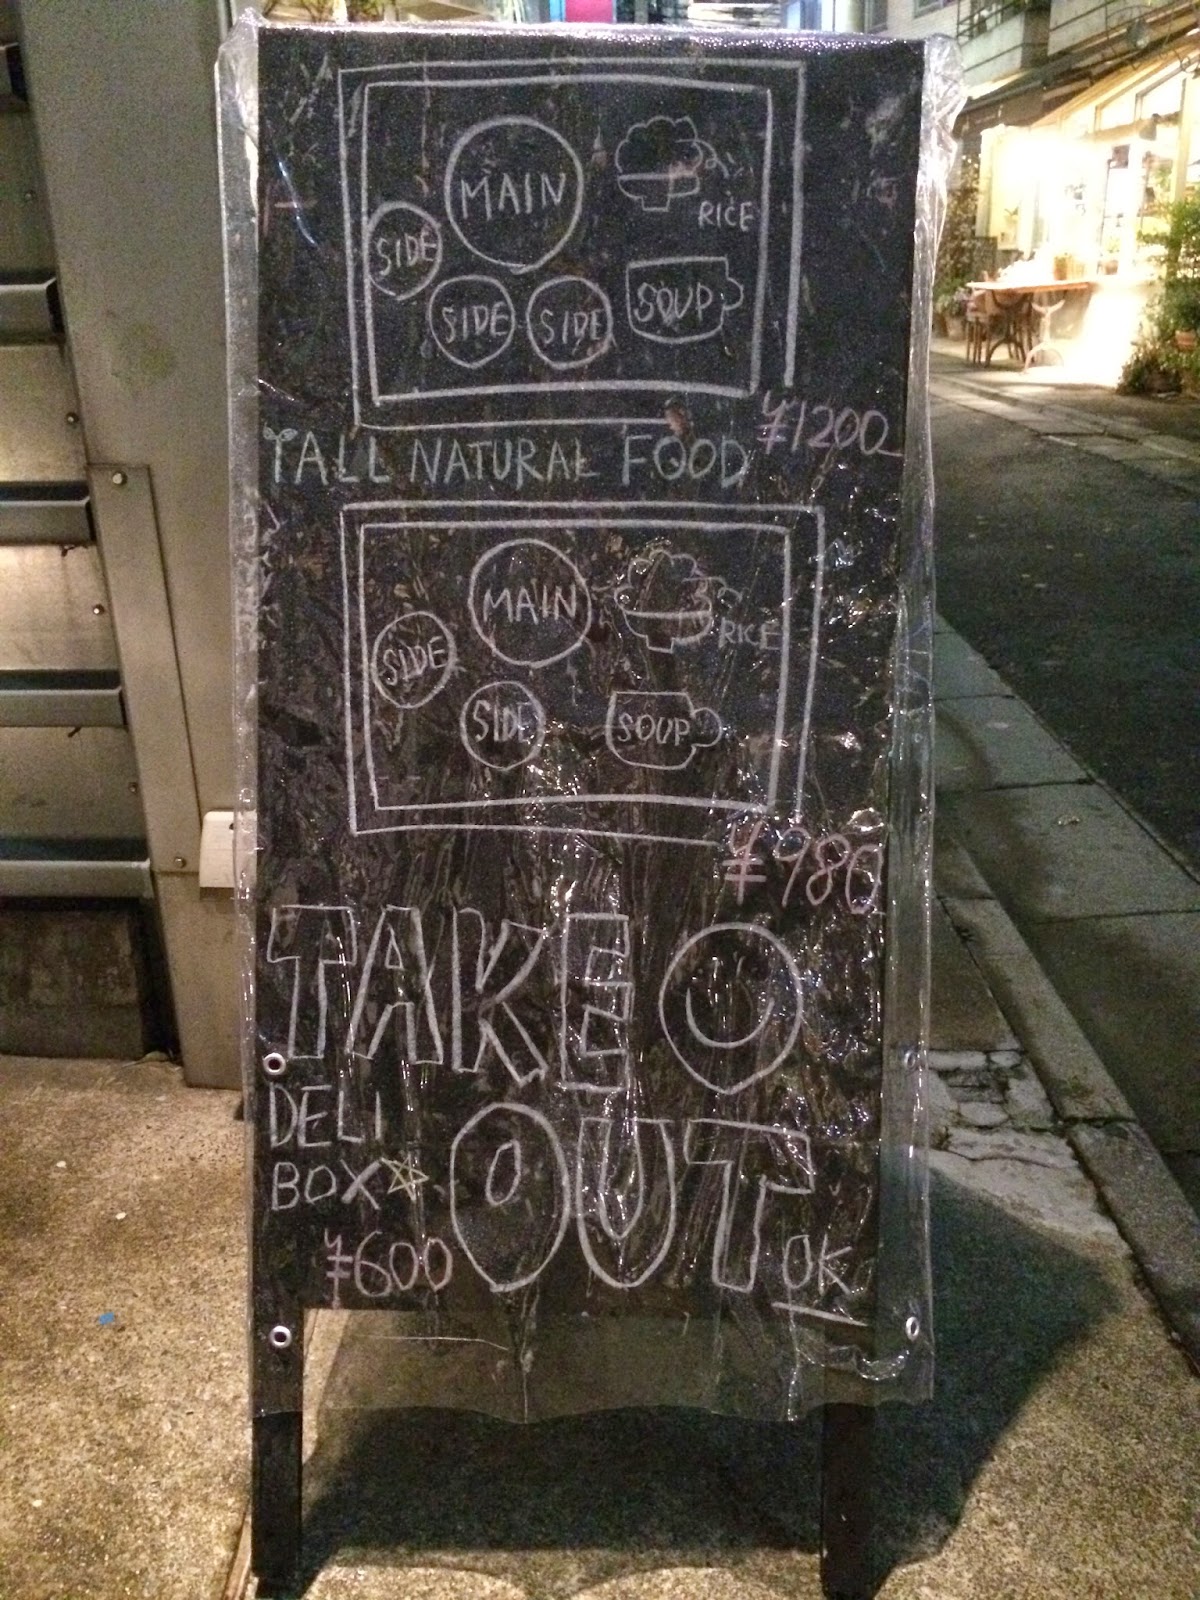 MAIN
RICE
SIDE
SIDE SIDE SOUP
¥1200
TALL NATURAL FOOD
MAIN
RICE
SIDE
SIDE SOUP
¥980
TAKE
DELI
BOX
OUT
¥600
OK